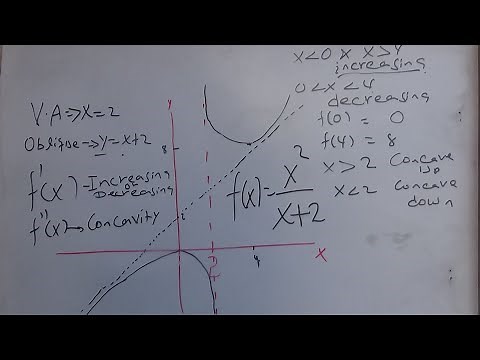 V.A⇒X=2
Oblique⇒y=x+2
f'(x)→Increasing
or
Decreasing
f''(x)→Concavity
y
8
2
4
X
f(x)=x²/x+2
X<0 X X>4
increasing
0<x<4
decreasing
f(0) = 0
f(4) = 8
X>2 Concave
up
X<2 Concave
down